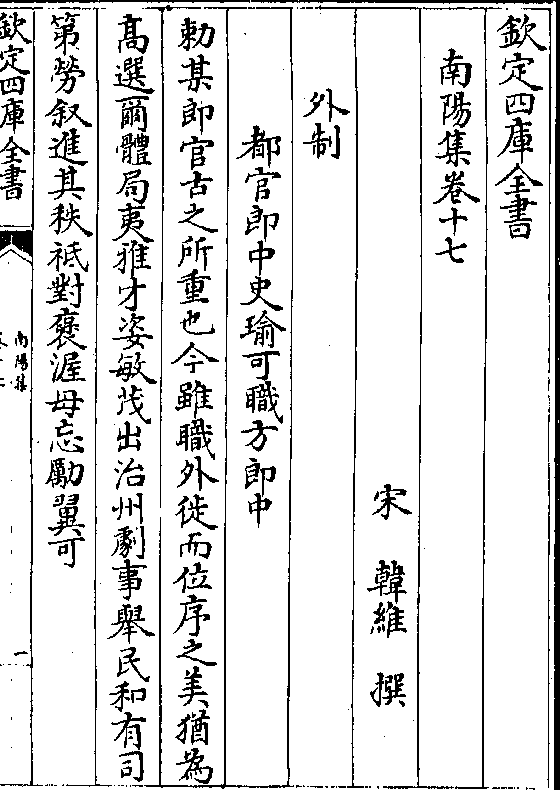 欽定四庫全書
南陽集卷十七
宋　韓維　撰
外制
都官郎中史瑜可職方郎中
勅某郎官古之所重也今雖職外徙而位序之美猶為
高選爾體局夷雅才姿敏茂出治州劇事舉民和有司
第勞叙進其秩祗對褒渥毋忘勵翼可
欽定四庫全書
南陽集
一